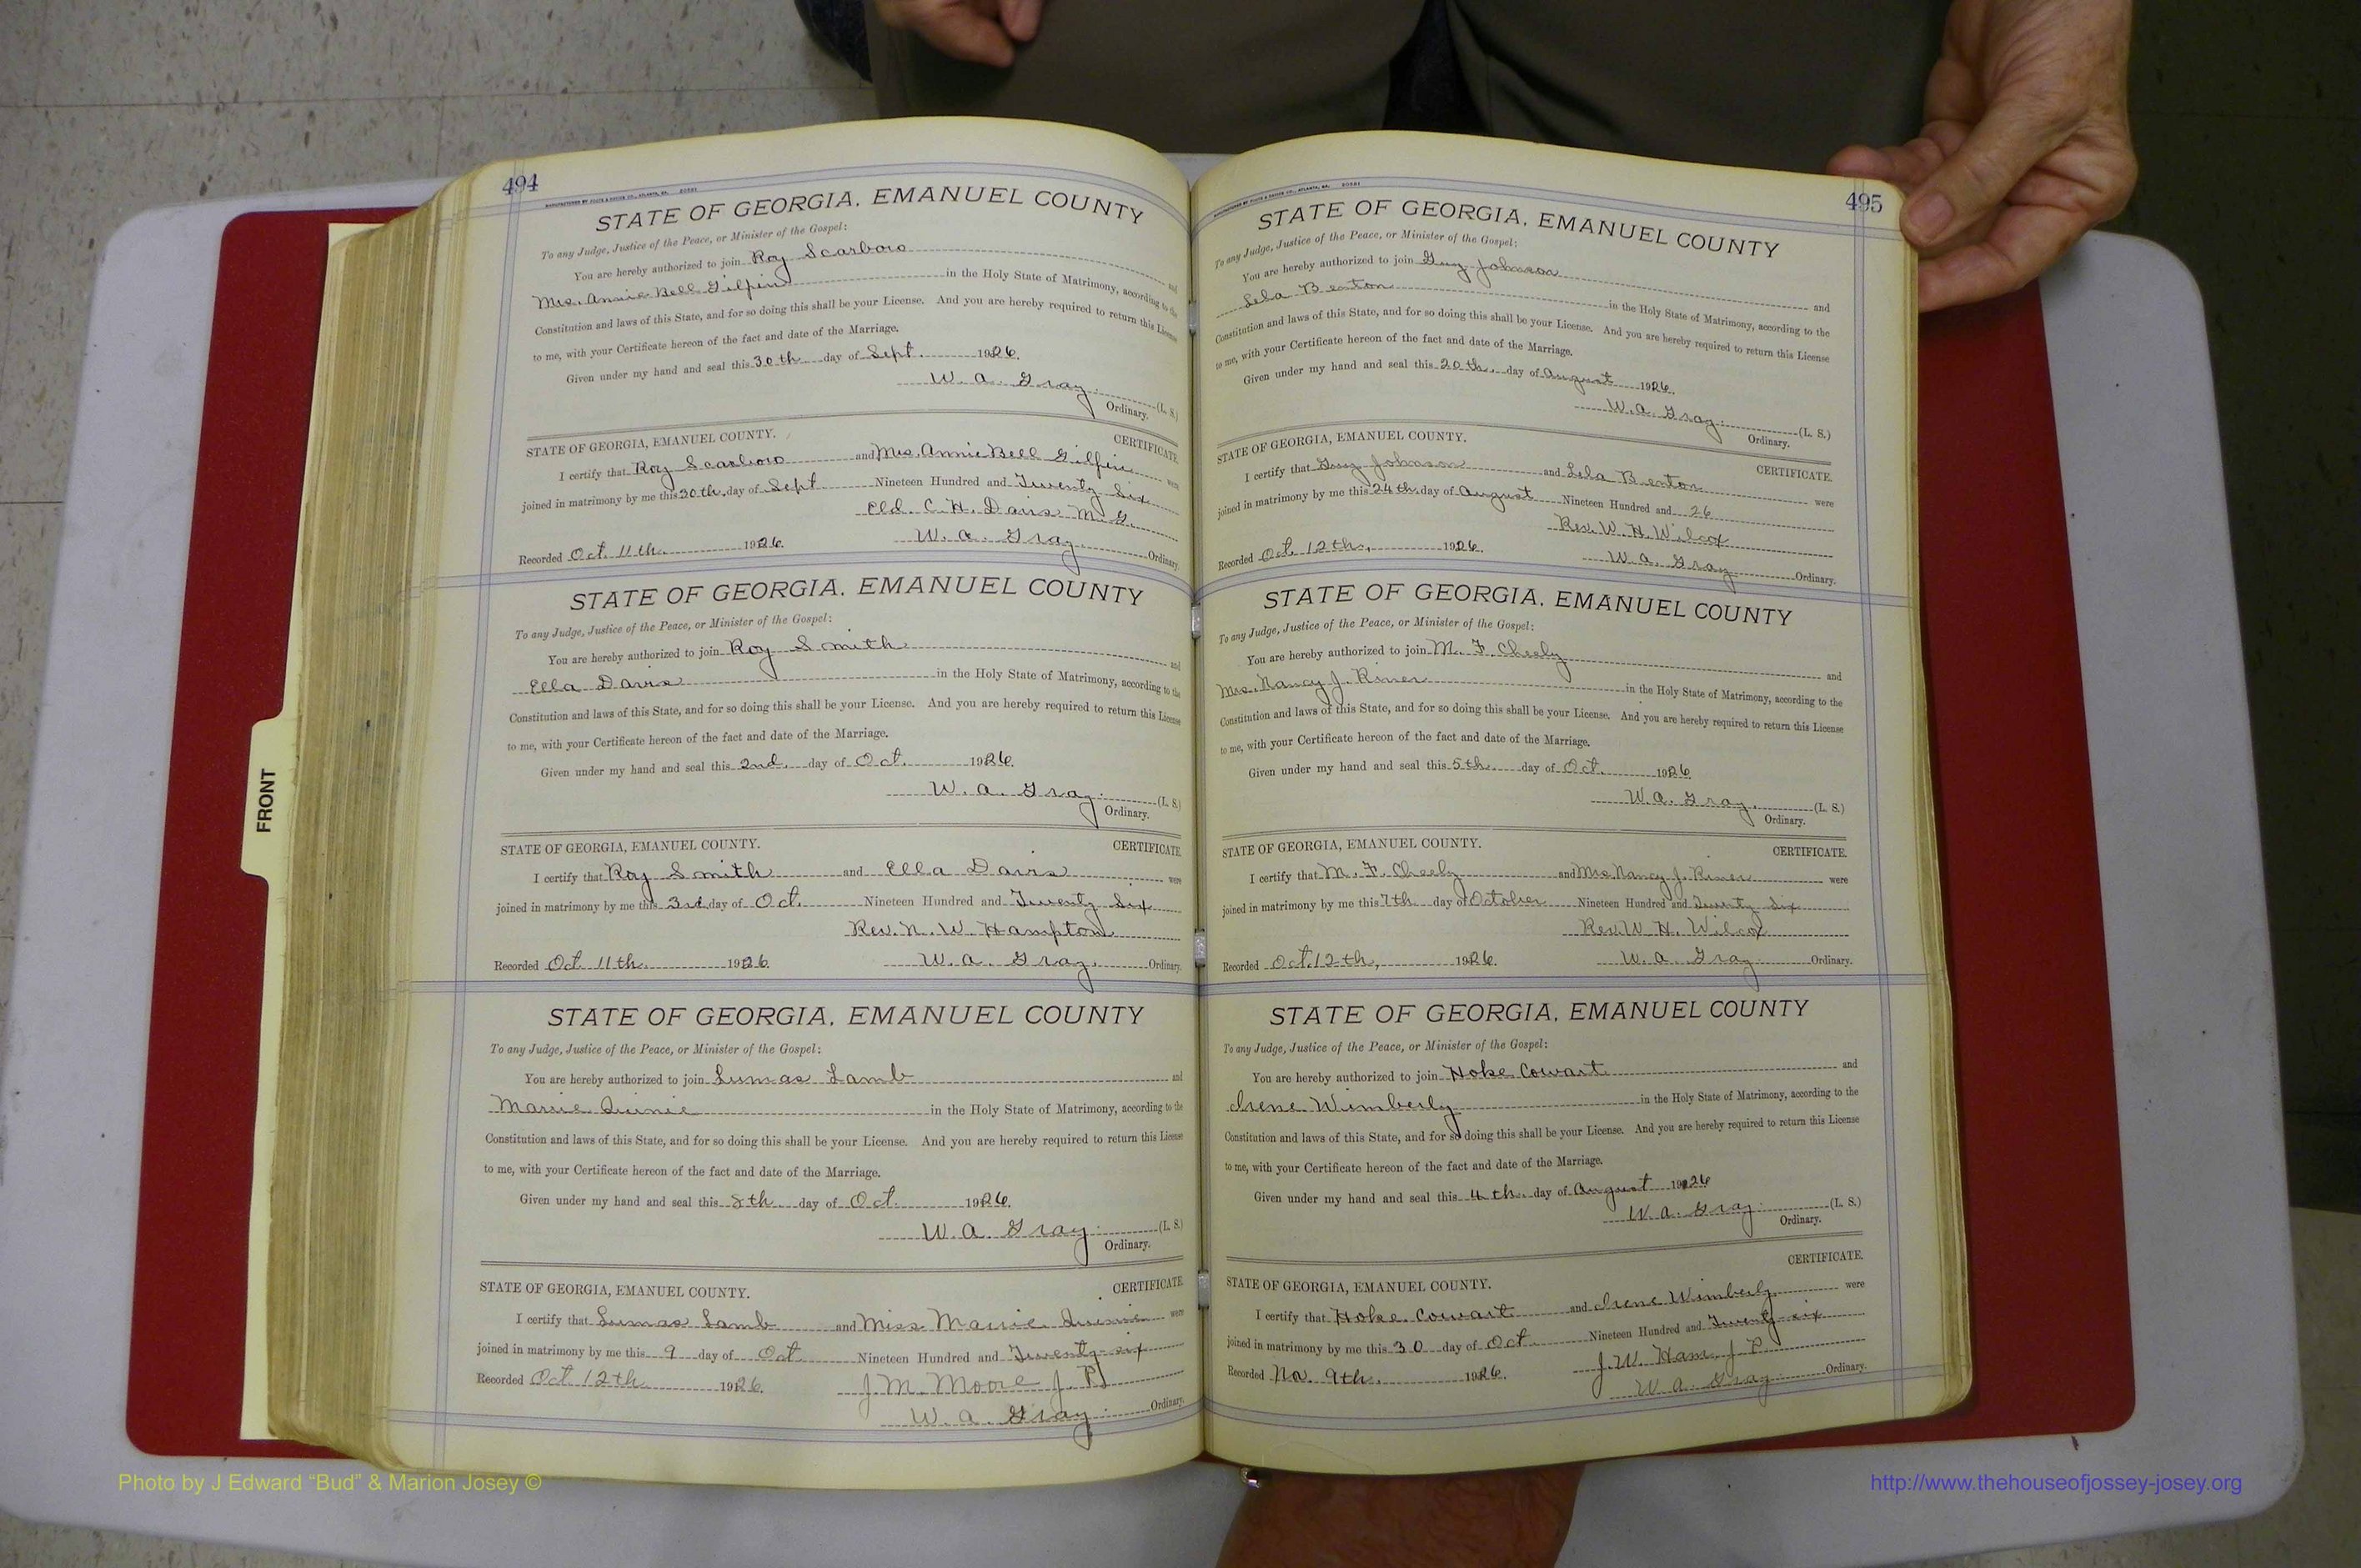 494
STATE OF GEORGIA, EMANUEL COUNTY
To any Judge, Justice of the Peace, or Minister of the Gospel:
You are hereby authorized to join Roy Scarboro and
Mrs. Annie Bell Gilpin in the Holy State of Matrimony, according to the
Constitution and laws of this State, and for so doing this shall be your License. And you are hereby required to return this License
to me, with your Certificate hereon of the fact and date of the Marriage.
Given under my hand and seal this 30th day of Sept. 1926.
W. A. Gray. (L. S.)
Ordinary.
STATE OF GEORGIA, EMANUEL COUNTY. CERTIFICATE
I certify that Roy Scarboro and Mrs. Annie Bell Gilpin were
joined in matrimony by me this 30th. day of Sept Nineteen Hundred and Twenty Six
Eld. C. H. Davis M. G.
Recorded Oct. 11th. 1926. W. A. Gray. Ordinary.
STATE OF GEORGIA, EMANUEL COUNTY
To any Judge, Justice of the Peace, or Minister of the Gospel:
You are hereby authorized to join Roy Smith and
Ella Davis in the Holy State of Matrimony, according to the
Constitution and laws of this State, and for so doing this shall be your License. And you are hereby required to return this License
to me, with your Certificate hereon of the fact and date of the Marriage.
Given under my hand and seal this 2nd. day of Oct. 1926.
W. A. Gray. (L. S.)
Ordinary.
STATE OF GEORGIA, EMANUEL COUNTY. CERTIFICATE
I certify that Roy Smith and Ella Davis were
joined in matrimony by me this 3rd. day of Oct. Nineteen Hundred and Twenty Six
Rev. N. W. Hampton
Recorded Oct 11th. 1926. W. A. Gray. Ordinary.
STATE OF GEORGIA, EMANUEL COUNTY
To any Judge, Justice of the Peace, or Minister of the Gospel:
You are hereby authorized to join Lumas Lamb and
in the Holy State of Matrimony, according to the
Constitution and laws of this State, and for so doing this shall be your License. And you are hereby required to return this License
to me, with your Certificate hereon of the fact and date of the Marriage.
Given under my hand and seal this 8th. day of Oct. 1926.
W. A. Gray. (L. S.)
Ordinary.
STATE OF GEORGIA, EMANUEL COUNTY. CERTIFICATE
I certify that Lumas Lamb and Miss were
joined in matrimony by me this 9 day of Oct. Nineteen Hundred and Twenty-six
Recorded Oct 12th 1926. J. M. Moore J. P.
W. A. Gray. Ordinary.
495
STATE OF GEORGIA, EMANUEL COUNTY
To any Judge, Justice of the Peace, or Minister of the Gospel:
You are hereby authorized to join Guy Johnson and
Lela Benton in the Holy State of Matrimony, according to the
Constitution and laws of this State, and for so doing this shall be your License. And you are hereby required to return this License
to me, with your Certificate hereon of the fact and date of the Marriage.
Given under my hand and seal this 20th. day of August 1926.
W. A. Gray. (L. S.)
Ordinary.
STATE OF GEORGIA, EMANUEL COUNTY. CERTIFICATE.
I certify that Guy Johnson and Lela Benton were
joined in matrimony by me this 24th. day of August Nineteen Hundred and 26
Rev. W. H. Wilcox
Recorded Oct. 12th., 1926. W. A. Gray Ordinary.
STATE OF GEORGIA, EMANUEL COUNTY
To any Judge, Justice of the Peace, or Minister of the Gospel:
You are hereby authorized to join M. F. Cheely and
Mrs. Nancy J. Riner in the Holy State of Matrimony, according to the
Constitution and laws of this State, and for so doing this shall be your License. And you are hereby required to return this License
to me, with your Certificate hereon of the fact and date of the Marriage.
Given under my hand and seal this 5th. day of Oct. 1926
W. A. Gray. (L. S.)
Ordinary.
STATE OF GEORGIA, EMANUEL COUNTY. CERTIFICATE.
I certify that M. F. Cheely and Mrs Nancy J. Riner were
joined in matrimony by me this 7th day of October Nineteen Hundred and Twenty Six
Rev. W. H. Wilcox
Recorded Oct. 12th, 1926. W. A. Gray Ordinary.
STATE OF GEORGIA, EMANUEL COUNTY
To any Judge, Justice of the Peace, or Minister of the Gospel:
You are hereby authorized to join Hoke Cowart and
Irene Wimberly in the Holy State of Matrimony, according to the
Constitution and laws of this State, and for so doing this shall be your License. And you are hereby required to return this License
to me, with your Certificate hereon of the fact and date of the Marriage.
Given under my hand and seal this 4th. day of August 1926
W. A. Gray. (L. S.)
Ordinary.
STATE OF GEORGIA, EMANUEL COUNTY. CERTIFICATE.
I certify that Hoke Cowart and Irene Wimberly were
joined in matrimony by me this 30 day of Oct. Nineteen Hundred and Twenty-six
J. W. Ham, J. P.
Recorded Nov. 9th. 1926. W. A. Gray Ordinary.
FRONT
Photo by J Edward “Bud” & Marion Josey ©
http://www.thehouseofjossey-josey.org